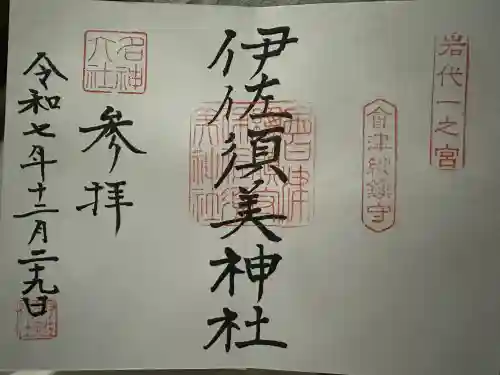 岩代一之宮
會津總鎮守
伊佐須美神社
名神大社
参拝
令和七年十二月二十九日